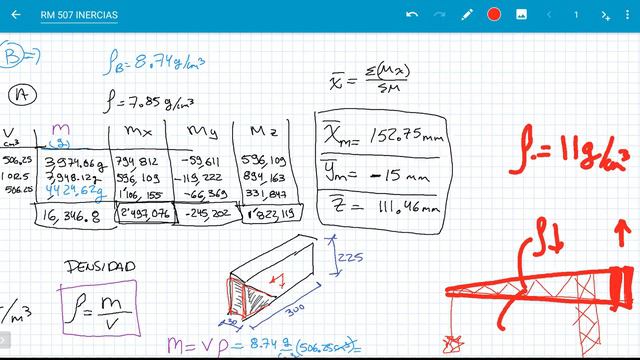 RM 507 INERCIAS
1
B =>
ρB = 8.74 g/cm³
A
ρ = 7.85 g/cm³
x̄ = Σ(Mx)/ΣM
V cm³ | m (g) | mx | My | Mz
506.25 | 3,974.06g | 794,812 | -59,611 | 596,109
1012.5 | 7,948.12g | 596,109 | -119,222 | 894,163
506.25 | 4424.62g | 1'106,155 | -66,369 | 331,847
16,346.8 | 2'497,076 | -245,202 | 1'822,119
X̄m = 152.75 mm
Ȳm = -15 mm
Z̄ = 111.46 mm
ρ = 11 g/cm³
ρ↓
DENSIDAD
/m³
ρ = m/V
225
30
300
m = V ρ = 8.74 g/cm³ (506.25cm³) =